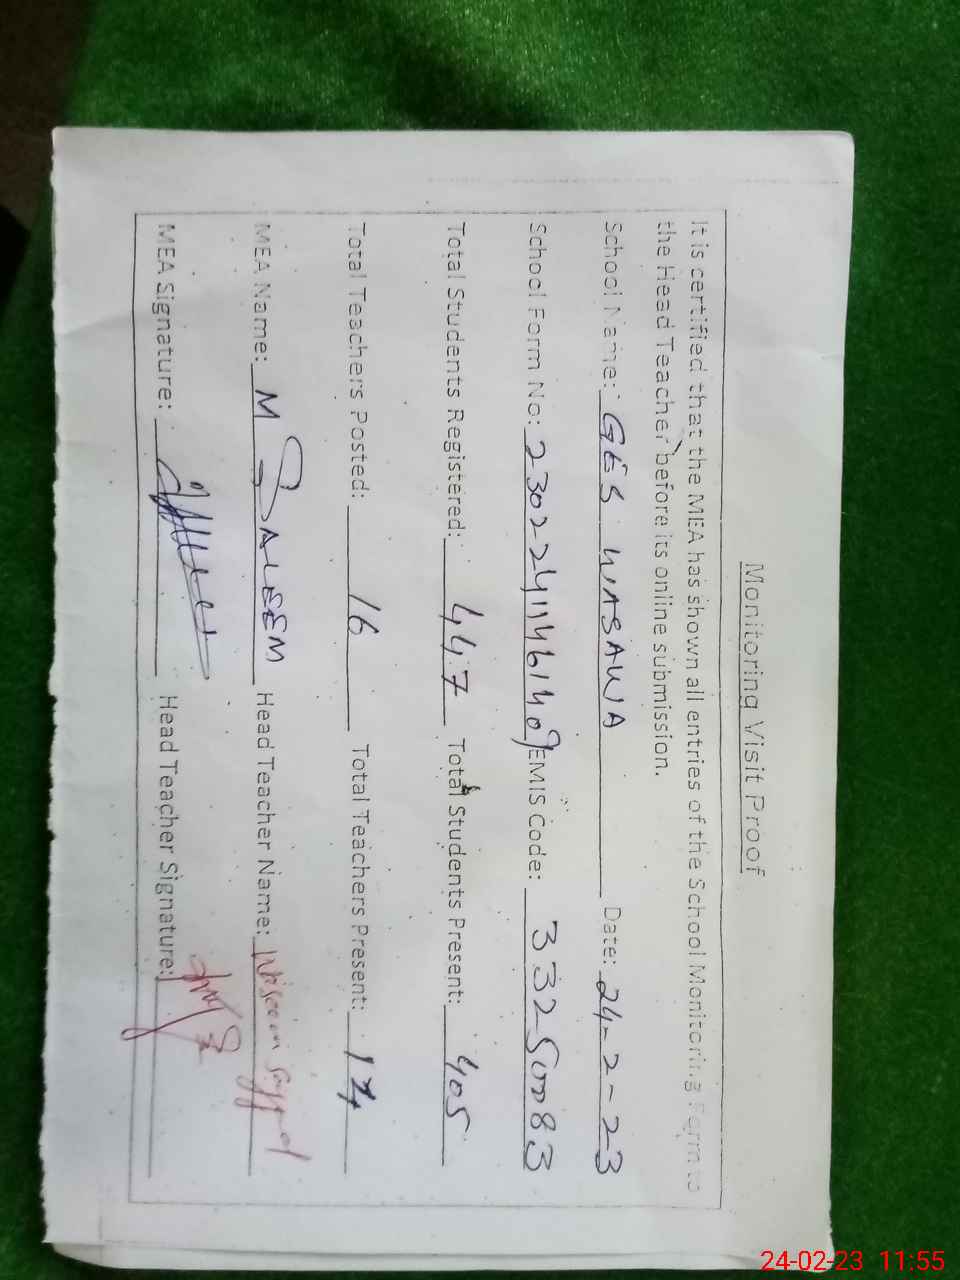 Monitoring Visit Proof
It is certified that the MEA has shown all entries of the School Monitoring Form to
the Head Teacher before its online submission.
School Name: GES WASAWIA Date: 24-2-23
School Form No: EMIS Code:
Total Students Registered: 447 Total Students Present: 405
Total Teachers Posted: 16 Total Teachers Present:
MEA Name: M SALEEM Head Teacher Name:
MEA Signature: Head Teacher Signature:
24-02-23 11:55